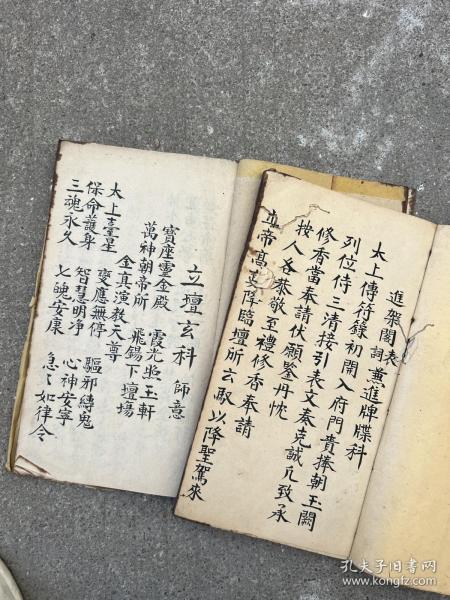 進架閣表
詞薫進牌牒科
太上傳符籙初開入府門貴捧朝玉闕
列位侍三清接引表文奏克誠凢致承
修香當奉請伏願鑒丹忱
按人各恭敬至禮修香奉請
帝高真降臨壇所云取以降聖駕來
立壇玄科 師意
寶座雲金殿 霞光照玉軒
萬神朝帝所 飛錫下壇場
金真演教天尊
太上臺星 變應無停 驅邪縛鬼
保命護身 智慧明净 心神安寧
三魂永久 七魄安康 急々如律令
孔夫子旧书网
www.kongfz.com